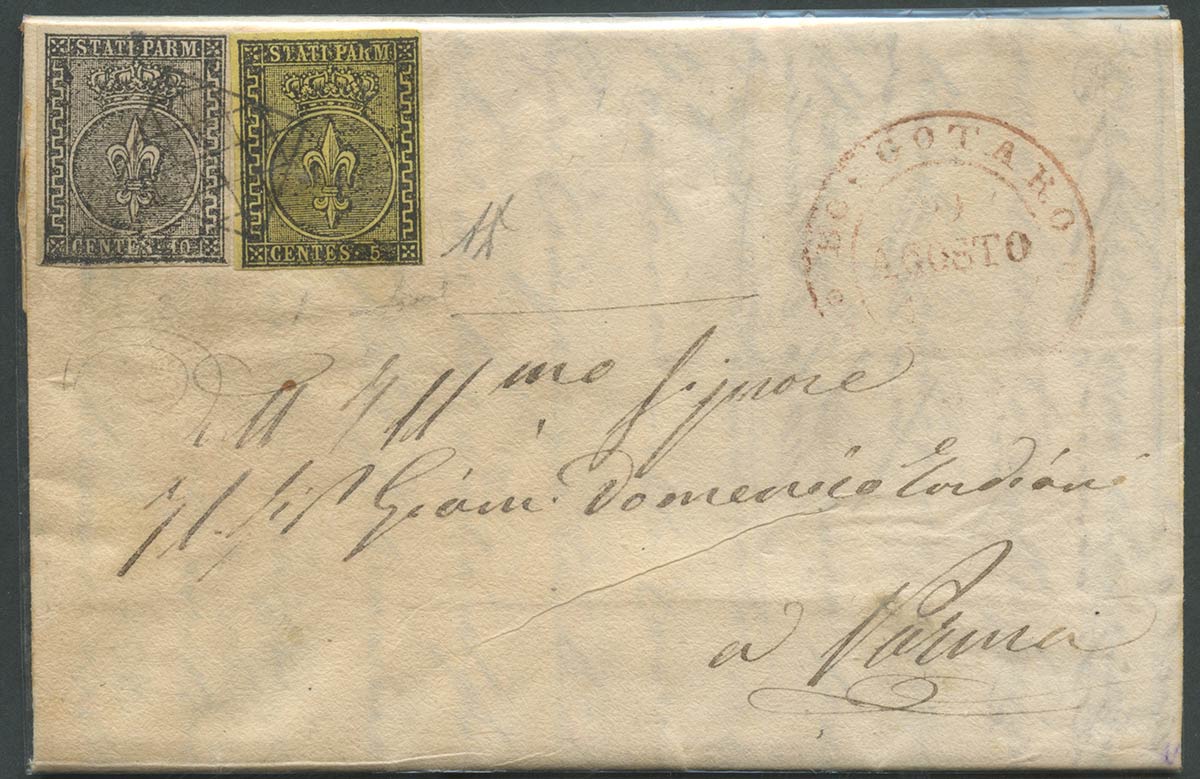 STATI PARM
CENTES. 10
STATI PARM
CENTES. 5
BORGOTARO
AGOSTO
Ill mo Signore
Il Sig Giovni Domenico
a Parma